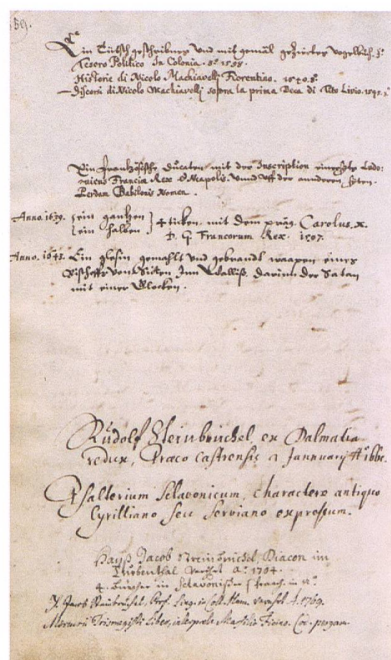 Ein Tütsch geschribner und mit gemäl gezierter vogelbůch.
Tesoro Politico In Colonia. 8° 1598.
Historie di Nicolo Machiavelli Fiorentino. 1540. 8.
Discorsi di Nicolo Machiavelli sopra la prima Deca di Tito Livio. 1540. 8.
Ein Frantzösische Ducaten mit der Inscription einerseits Ludo-
vicus Franciae Rex Neapolis. Unnd uff der anderen seiten.
Perdam Babilonis Nomen.
Anno. 1639. ein gantzen
ein halben 4 dicken mit dem präg. Carolus. x.
D. G. Francorum Rex. 1597.
Anno. 1643. Ein glesin gemahlt und gebrandt waapen eines
Bischoffs von Sitten Inn Walliß, darinn der Satan
mit einer Glocken.
Rudolf Steinbrüchel, ex Dalmatia
redux, Praeco castrensis
Psalterium Sclavonicum, charactere antiquo
Cyrilliano seu Serviano expressum.
Hanß Jacob Steinbrüchel Diacon im
Turbenthal verehrt A° 1704.
4. bücher in Sclavonischer sprach in 8°
J. Jacob Steinbrüchel, Prof. Ling. in Coll. Hum. verehrt A. 1769.
Mercurii Trismegisti Liber, interprete Marsilio Ficino.